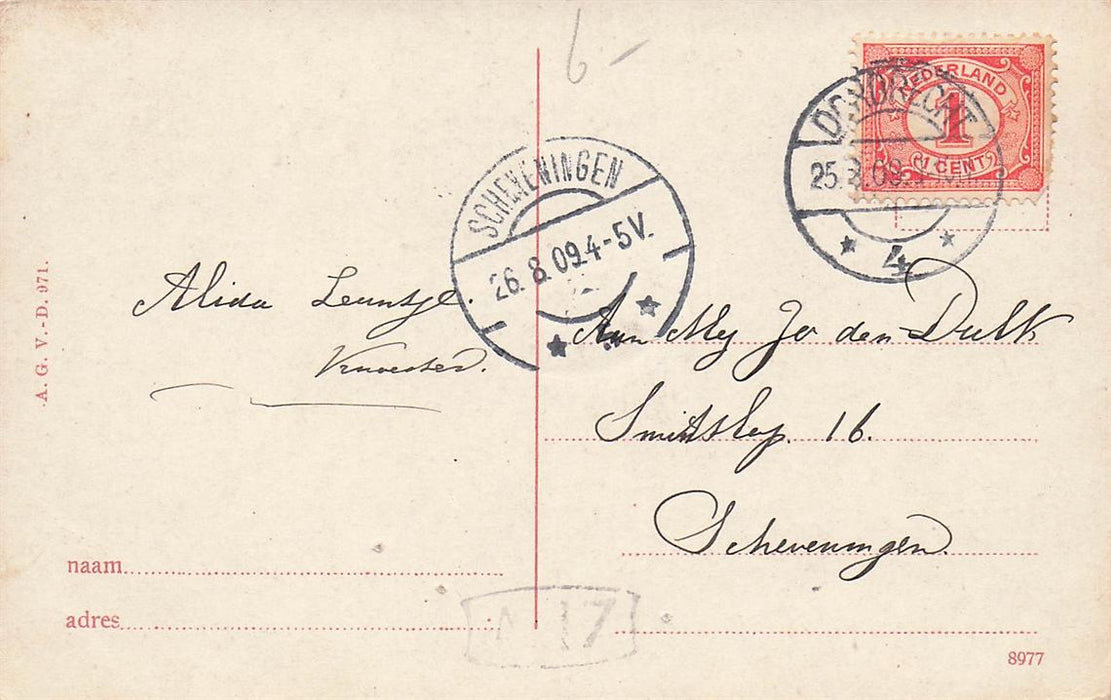 6-
NEDERLAND
1
1 CENT
DORDRECHT
25. 8. 09.
4
SCHEVENINGEN
26. 8. 09 4-5V.
Alida Leuntje.
Aan Mej Jo den Dulk
16.
Scheveningen.
naam
adres
17
8977
A. G. V.-D. 971.